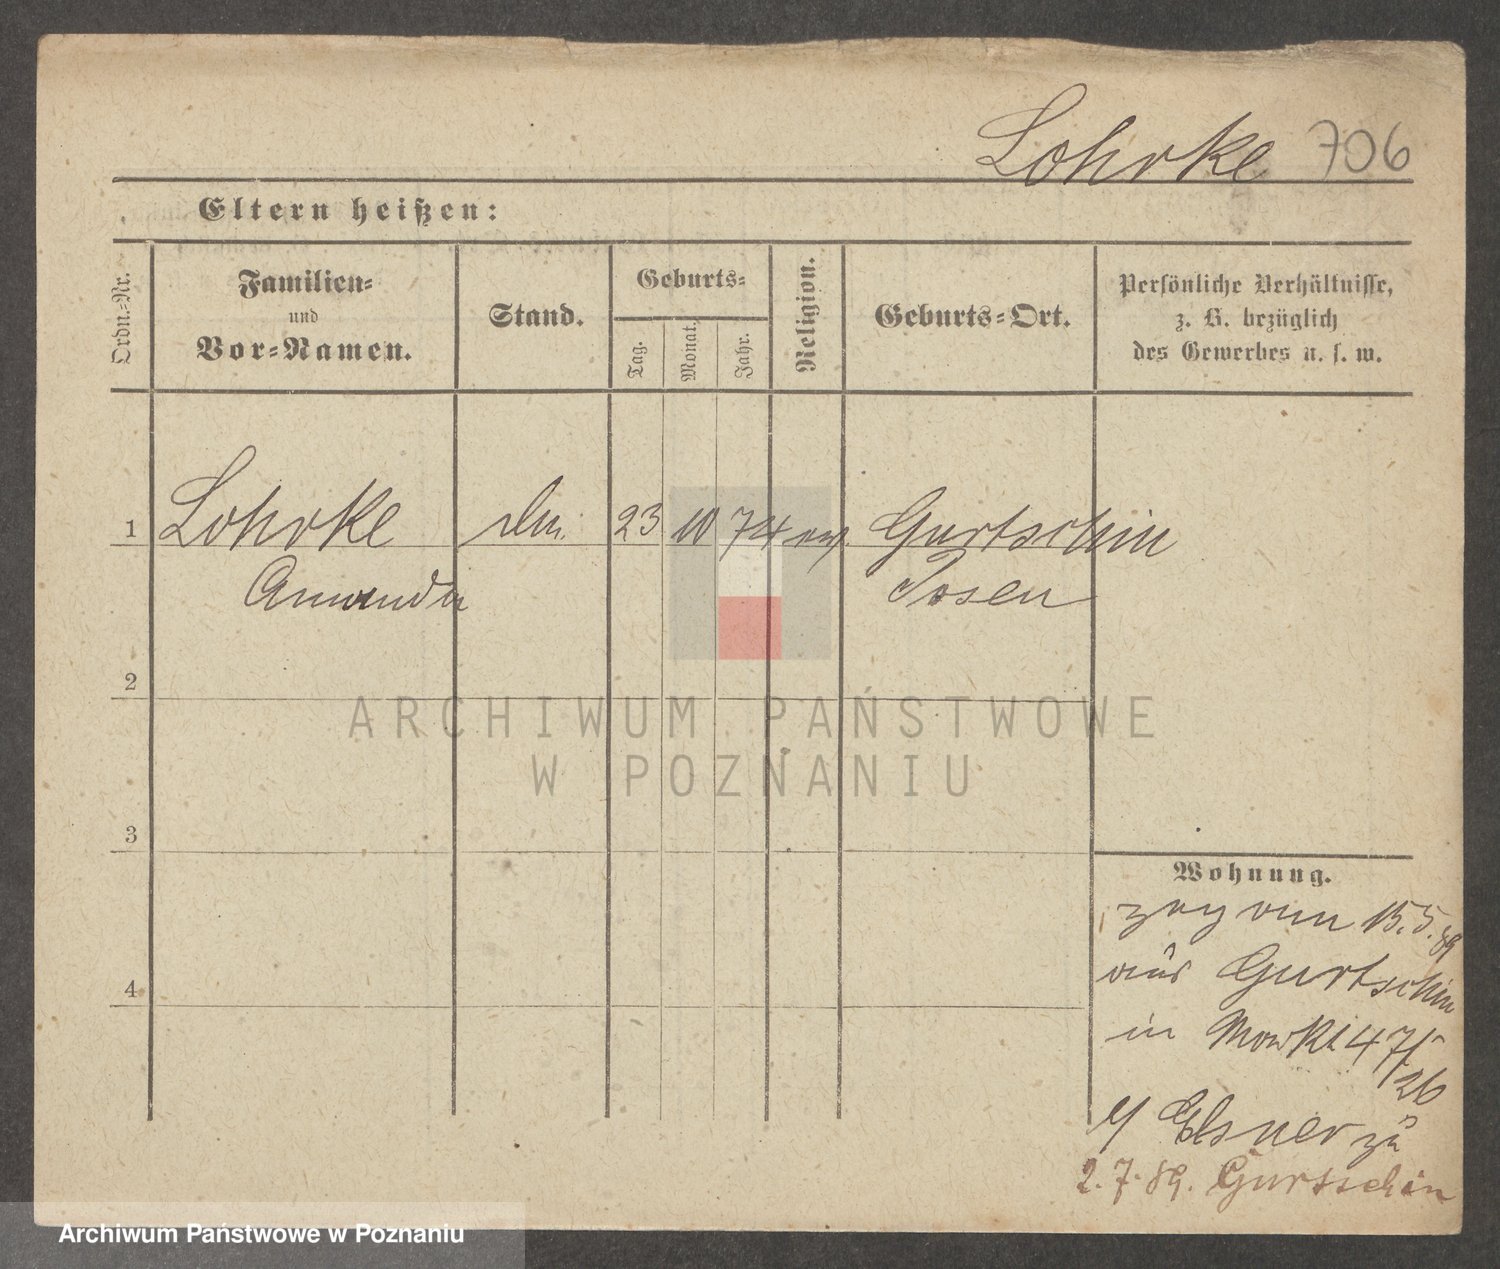 Lohrke 706
Eltern heißen:
Ordn.-Nr.
Familien-
und
Vor-Namen.
Stand.
Geburts-
Tag.
Monat.
Jahr.
Religion.
Geburts-Ort.
Persönliche Verhältnisse,
z. B. bezüglich
des Gewerbes u. s. w.
1 Lohrke 23 10 74 ev. Gurtschin
Amanda Posen
2
3
4
Wohnung.
zog am 15.5.89
aus Gurtschin
in 47/
26
Elsner zu
2.7.89. Gurtschin
ARCHIWUM PAŃSTWOWE
W POZNANIU
Archiwum Państwowe w Poznaniu